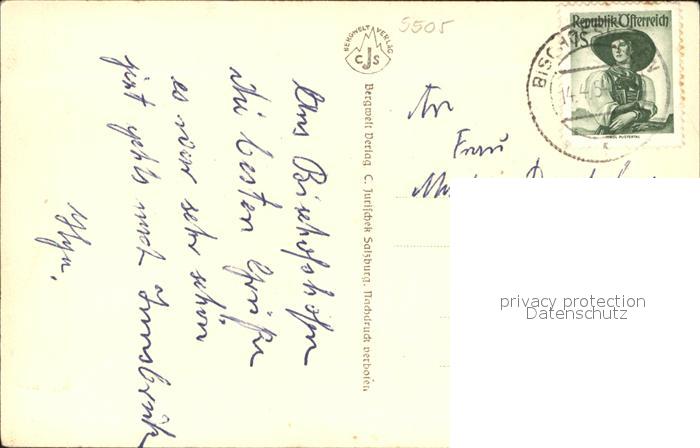 Aus Bischofshofen
die besten Grüße
es war sehr schön
jetzt geht's nach Innsbruck
5505
BERGWELT VERLAG
CJS
Bergwelt Verlag C. Jurischek Salzburg. Nachdruck verboten
Republik Österreich
BISCHOFSHOFEN
14.4.5
TIROL PUSTERTAL
An
Frau
privacy protection
Datenschutz